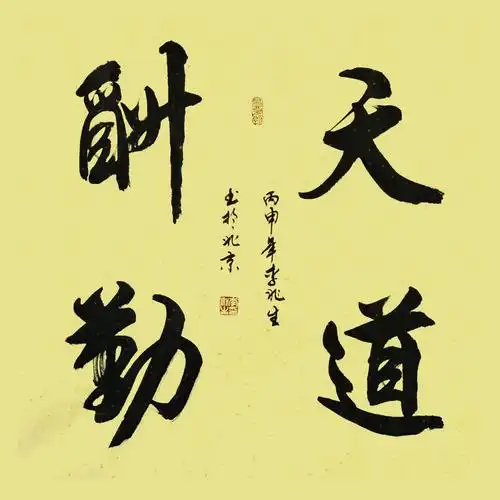 天道
酬勤
丙申年李兆生
书于北京